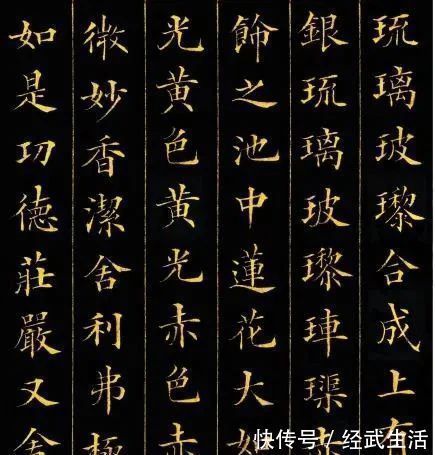 琉璃玻瓈合成上有
銀琉璃玻瓈𤥭璖赤
飾之池中蓮花大如
光黄色黄光赤色赤
微妙香潔舍利弗極
如是功德莊嚴又舍
快传号/经武生活